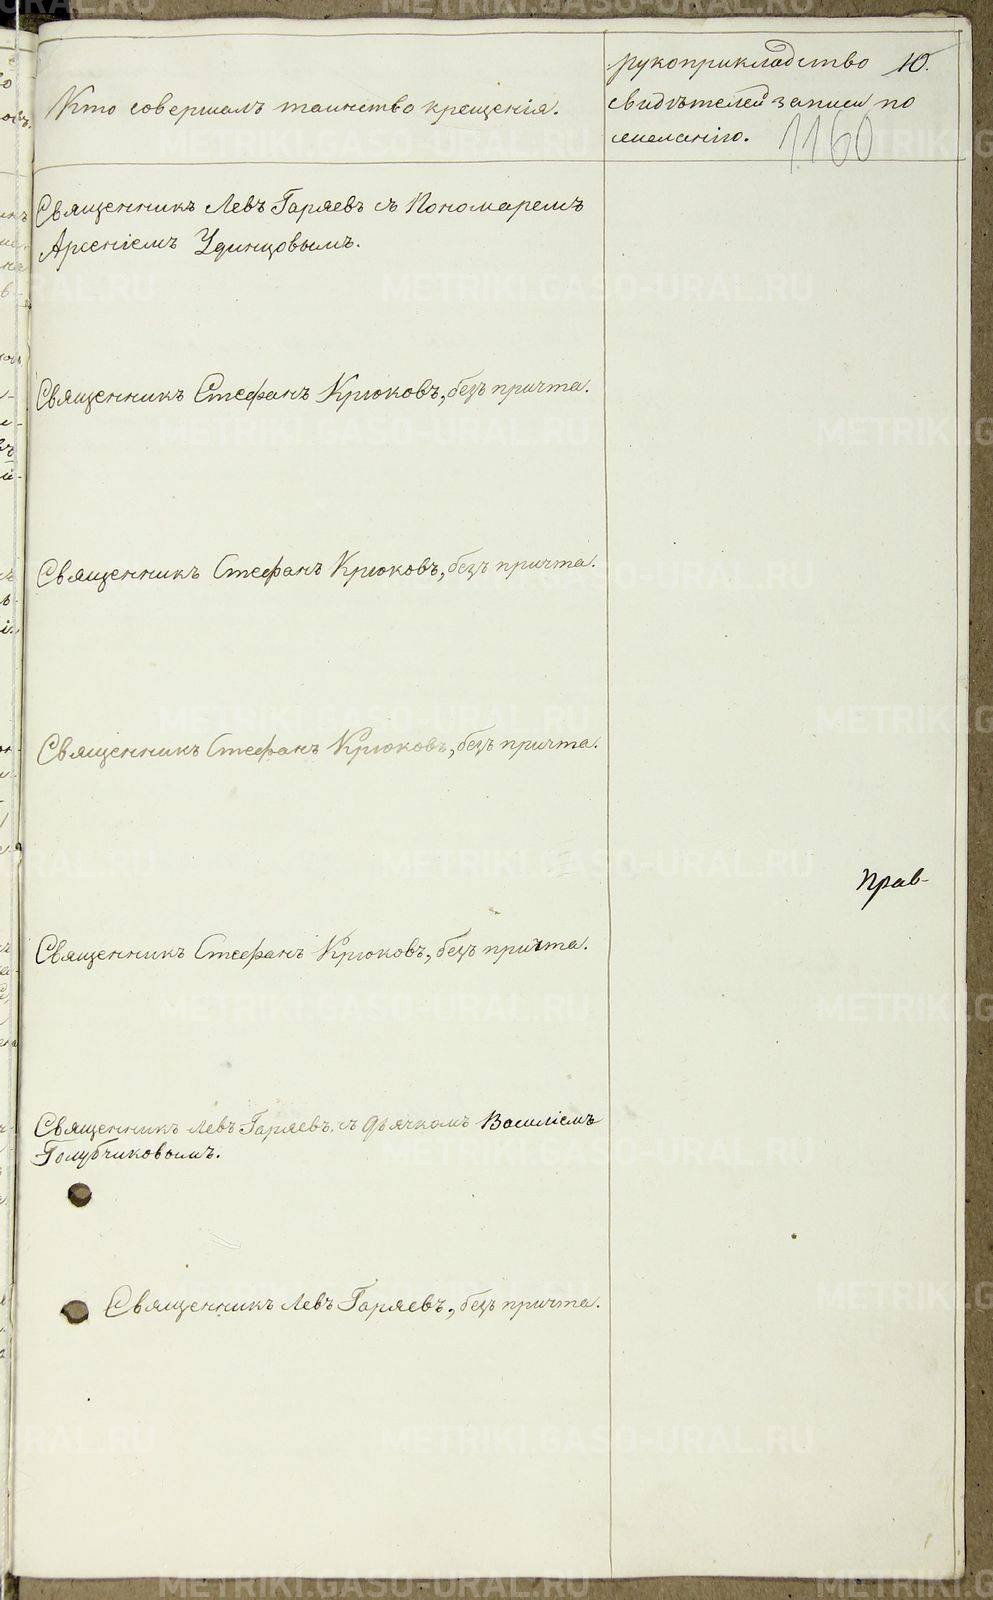 Кто совершалъ таинство крещенія.
рукоприкладство 10.
свидѣтелей записи по
желанію. 1160
Священникъ Левъ Гаряевъ съ Пономаремъ
Арсеніемъ Удинцовымъ.
Священникъ Стефанъ Крюковъ, безъ причта.
Священникъ Стефанъ Крюковъ, безъ причта.
Священникъ Стефанъ Крюковъ, безъ причта.
Прав-
Священникъ Стефанъ Крюковъ, безъ причта.
Священникъ Левъ Гаряевъ, съ дьячкомъ Василіемъ
Голубчиковымъ.
Священникъ Левъ Гаряевъ, безъ причта.
METRIKI.GASO-URAL.RU